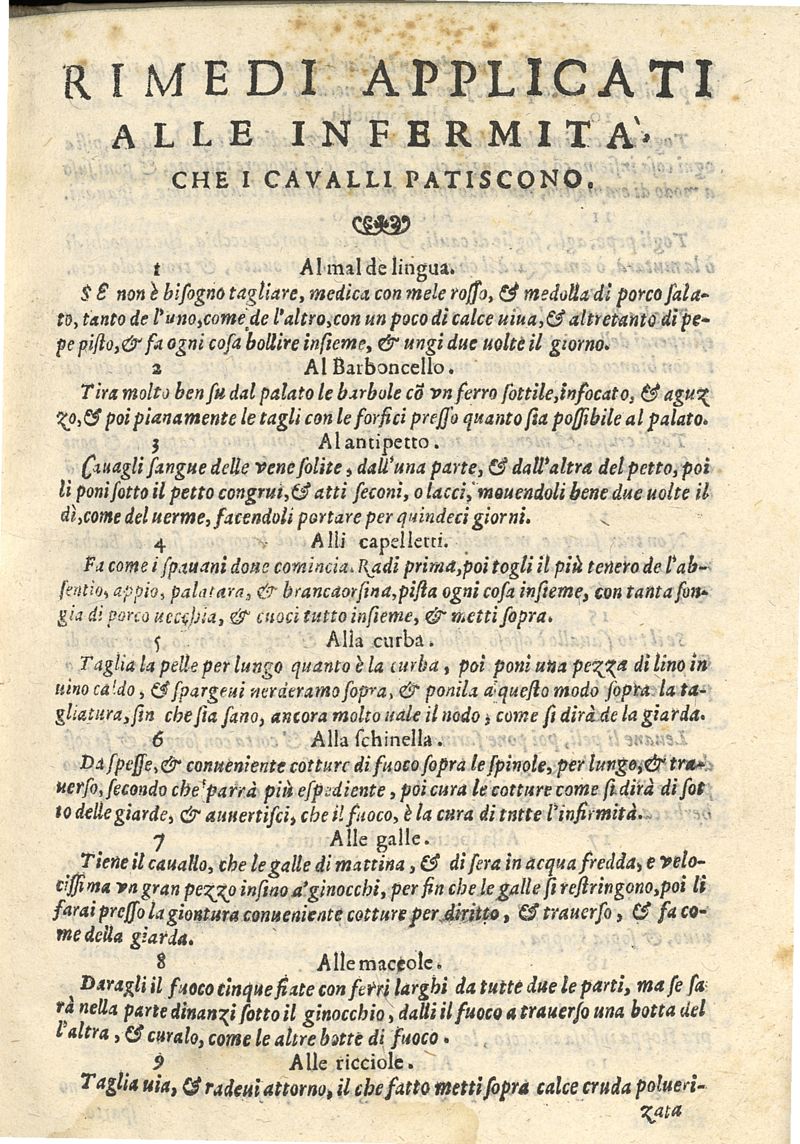 RIMEDI APPLICATI
ALLE INFERMITÀ,
CHE I CAVALLI PATISCONO.
1 Al mal de lingua.
SE non è biſogno tagliare, medica con mele roſſo, & medolla di porco ſala-
to, tanto de l'uno, come de l'altro, con un poco di calce uiua, & altretanto di pe-
pe piſto, & fa ogni coſa bollire inſieme, & ungi due uolte il giorno.
2 Al Barboncello.
Tira molto ben ſu dal palato le barbole cõ vn ferro ſottile, infocato, & aguz
zo, & poi pianamente le tagli con le forfici preſſo quanto ſia poſſibile al palato.
3 Al antipetto.
Cauagli ſangue delle vene ſolite, dall'una parte, & dall'altra del petto, poi
li poni ſotto il petto congrui, & atti ſeconi, o lacci, mouendoli bene due uolte il
dì, come del uerme, facendoli portare per quindeci giorni.
4 Alli capelletti.
Fa come i ſpauani doue comincia. Radi prima, poi togli il più tenero de l'ab-
ſentio, appio, palatara, & brancaorſina, piſta ogni coſa inſieme, con tanta ſon-
gia di porco uecchia, & cuoci tutto inſieme, & metti ſopra.
5 Alla curba.
Taglia la pelle per lungo quanto è la curba, poi poni una pezza di lino in
uino caldo, & ſpargeui uerderamo ſopra, & ponila a queſto modo ſopra la ta-
gliatura, ſin che ſia ſano, ancora molto uale il nodo, come ſi dirà de la giarda.
6 Alla ſchinella.
Da ſpeſſe, & conueniente cotture di fuoco ſopra le ſpinole, per lungo, & tra-
uerſo, ſecondo che parrà più eſpediente, poi cura le cotture come ſi dirà di ſot
to delle giarde, & auuertiſci, che il fuoco, è la cura di tutte l'infirmità.
7 Alle galle.
Tiene il cauallo, che le galle di mattina, & di ſera in acqua fredda, e velo-
ciſſima vn gran pezzo inſino a' ginocchi, per fin che le galle ſi reſtringono, poi li
farai preſſo la giontura conueniente cotture per diritto, & trauerſo, & fa co-
me della giarda.
8 Alle maccole.
Daragli il fuoco cinque fiate con ferri larghi da tutte due le parti, ma ſe ſa
rà nella parte dinanzi ſotto il ginocchio, dalli il fuoco a trauerſo una botta del
l'altra, & curalo, come le altre botte di fuoco.
9 Alle ricciole.
Taglia uia, & radeui attorno, il che fatto metti ſopra calce cruda polueri-
zata